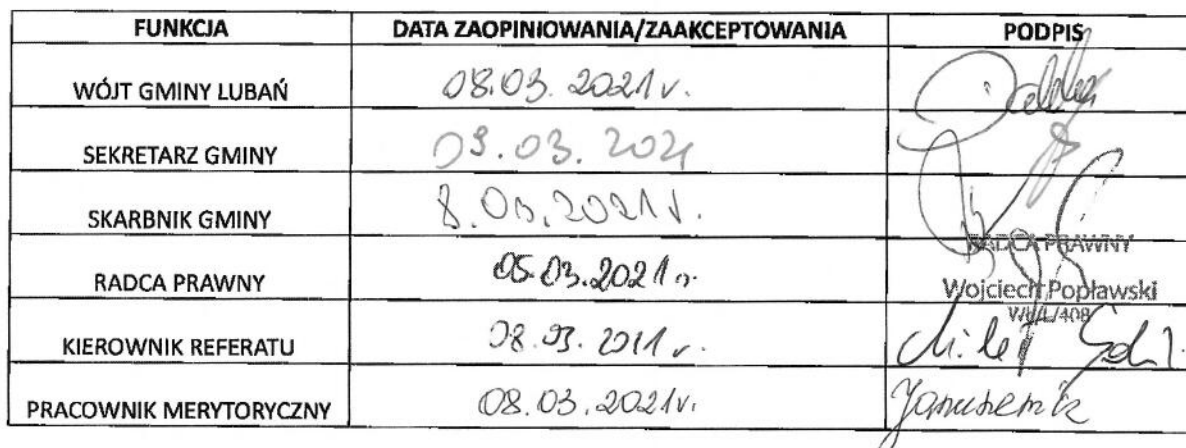 FUNKCJA DATA ZAOPINIOWANIA/ZAAKCEPTOWANIA PODPIS
WÓJT GMINY LUBAŃ 08.03.2021 r.
SEKRETARZ GMINY 09.03.2021
SKARBNIK GMINY 8.03.2021 r.
RADCA PRAWNY 05.03.2021 r. RADCA PRAWNY
Wojciech Popławski
KIEROWNIK REFERATU
PRACOWNIK MERYTORYCZNY 08.03.2021r.